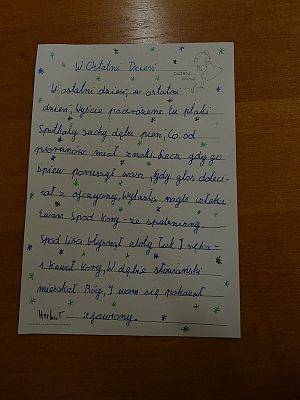 W Ostatni Dzień
W ostatni dzień, w ostatni
dzień, Wyście podróżene tu ptaki
Spotkały suchy dębu pień, Co od
piorunów miał znaki. Lecz gdy go
śpiew poruszył wasz, Gdy głos doleci-
ał z ojczyzny, Wylazła nagle
twarz Spod kory - ze spalenizny.
Spod liści błysnął złoty Łuk I ręka-
i kawał kory, W dębie słowiański
mieszkał Bóg, I wam się pokazał
zjawiony.